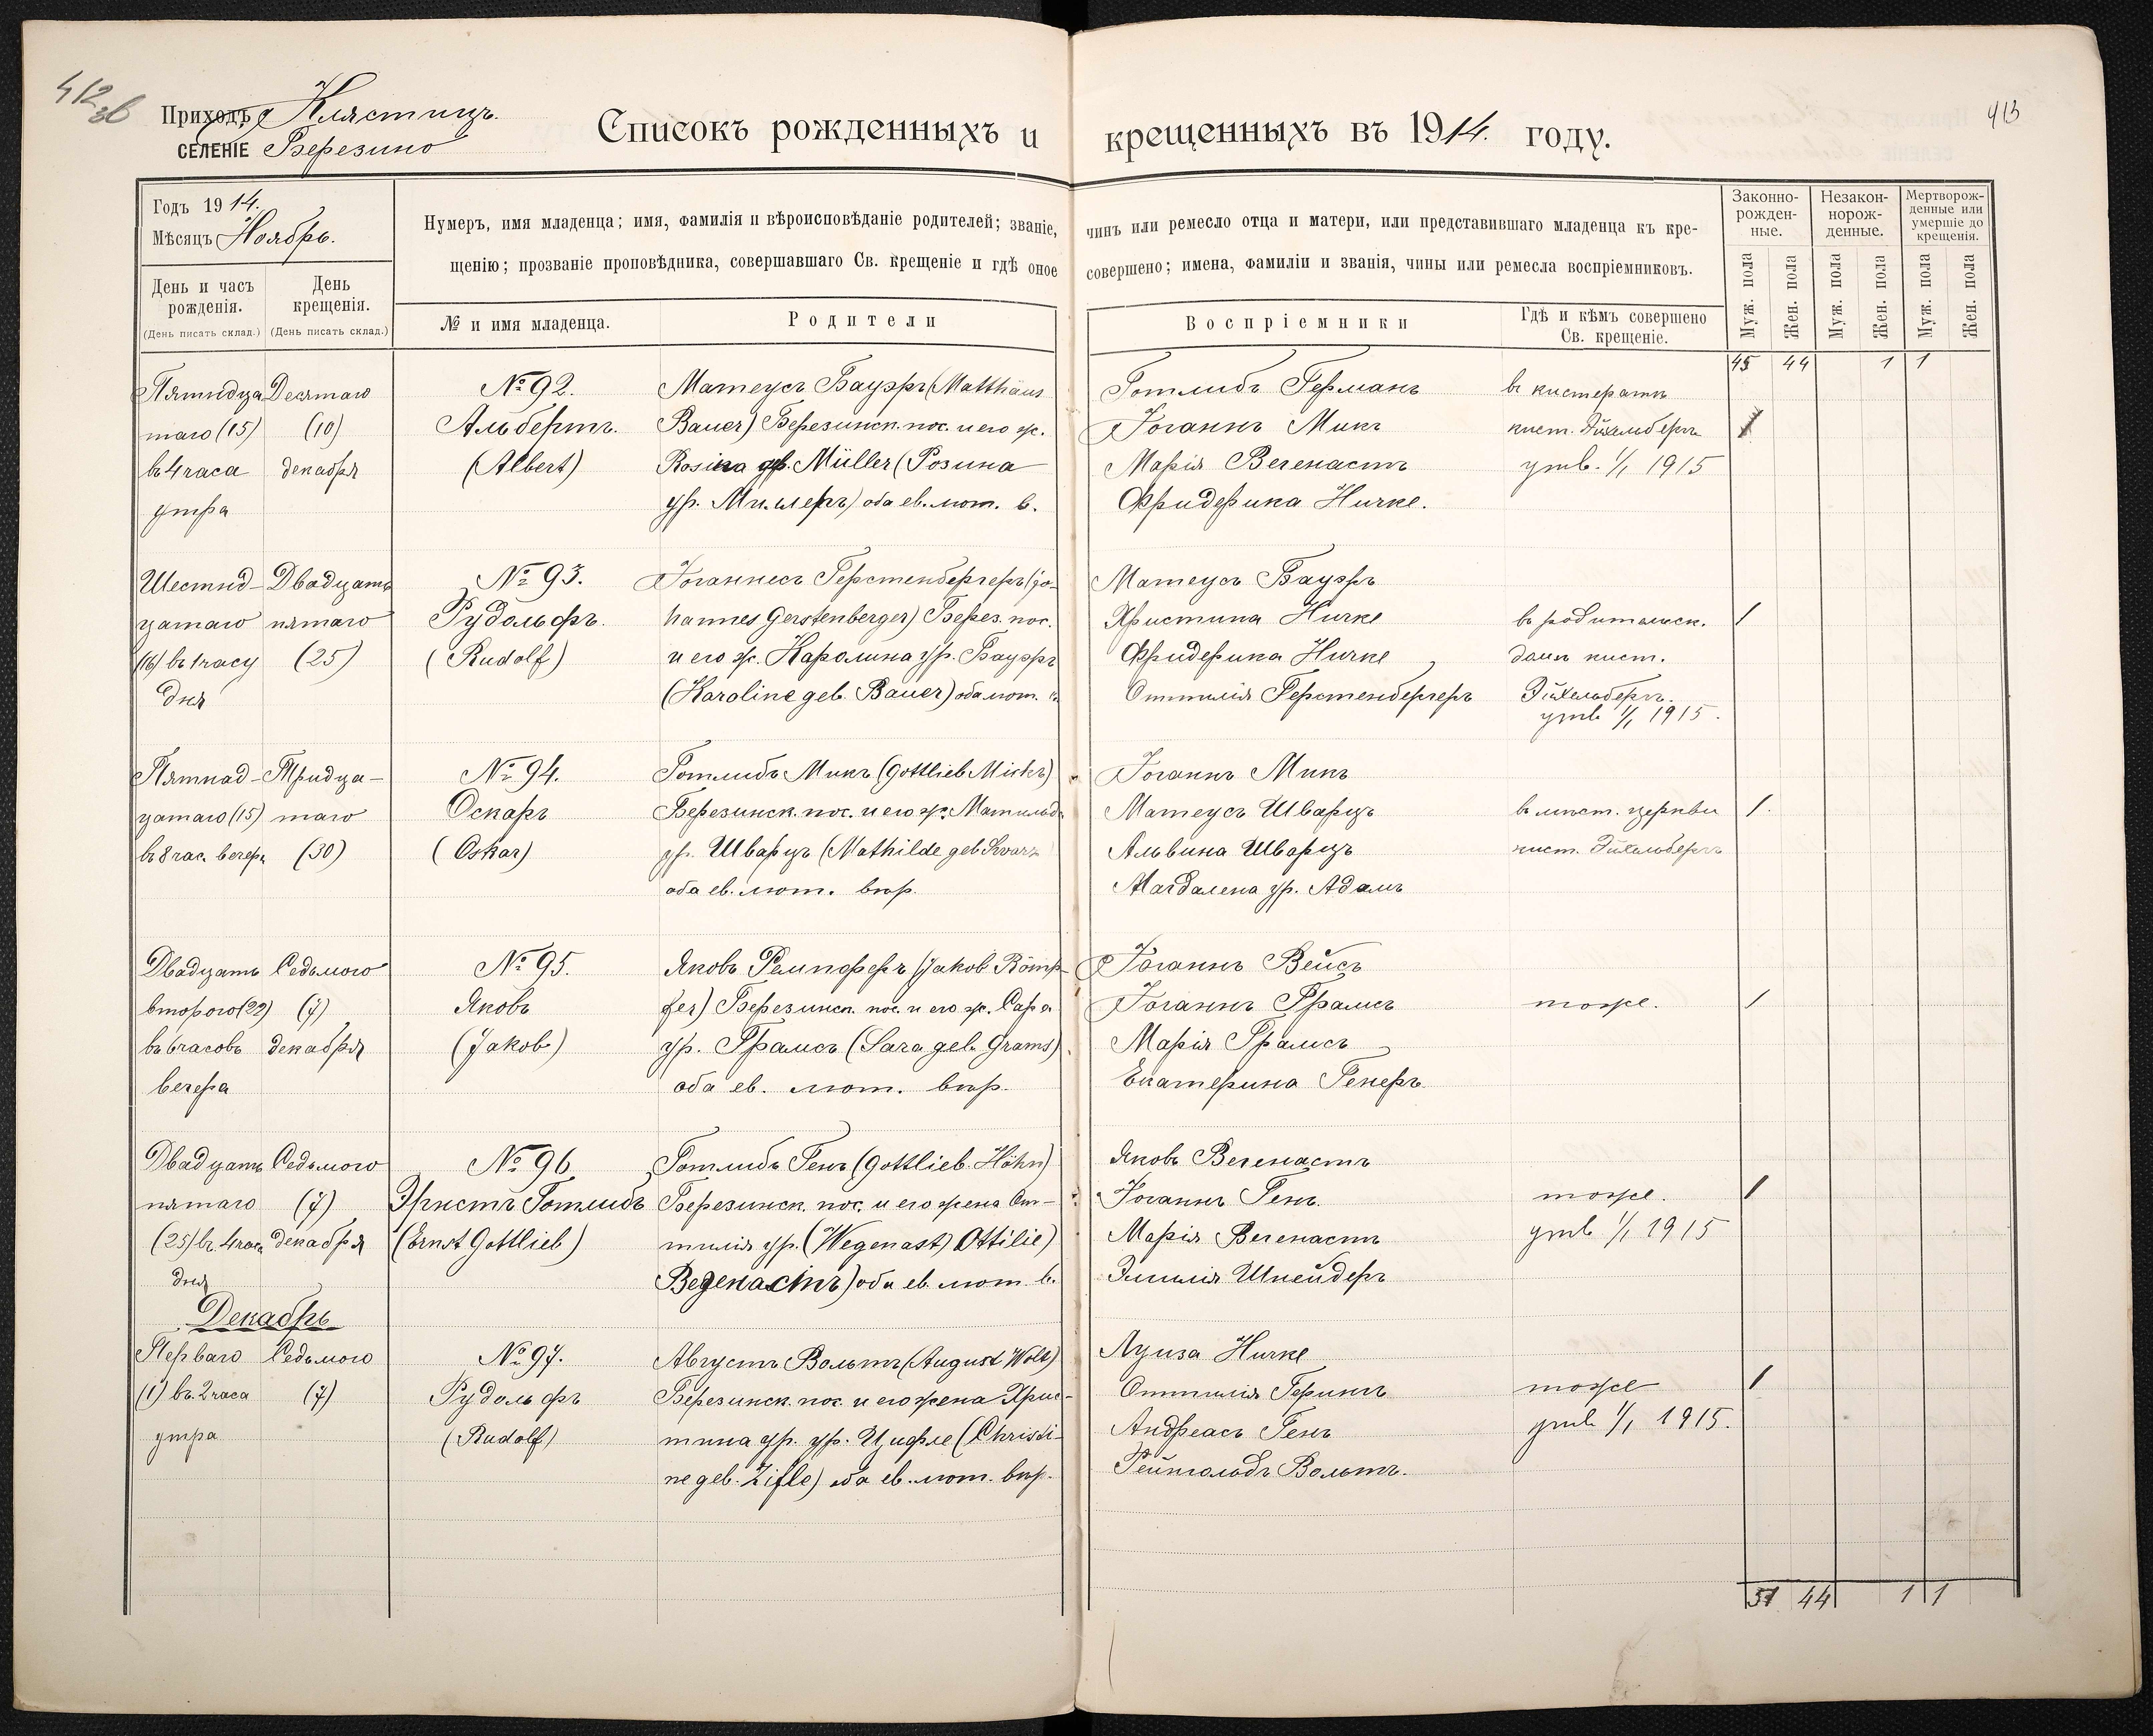 412 зв
413
Приходъ Клястицъ.
СЕЛЕНІЕ Березино
Списокъ рожденныхъ и крещенныхъ въ 1914. году.
Годъ 1914.
Мѣсяцъ Ноябрь.
День и часъ рожденія.
(День писать склад.)
День крещенія.
(День писать склад.)
Нумеръ, имя младенца; имя, фамилія и вѣроисповѣданіе родителей; званіе, чинъ или ремесло отца и матери, или представившаго младенца къ кре-
щенію; прозваніе проповѣдника, совершавшаго Св. крещеніе и гдѣ оное совершено; имена, фамиліи и званія, чины или ремесла воспріемниковъ.
№ и имя младенца.
Родители
Воспріемники
Гдѣ и кѣмъ совершено
Св. крещеніе.
Законно-
рожден-
ные.
Незакон-
норож-
денные.
Мертворож-
денные или
умершіе до
крещенія.
Муж. пола
Жен. пола
Муж. пола
Жен. пола
Муж. пола
Жен. пола
45 44 1 1
Пятнадца
таго (15)
в 4 часа
утра
Десятаго
(10)
декабря
№ 92.
Альбертъ.
(Albert)
Матеусъ Бауэръ (Matthäus
Bauer) Березинск. пос. и его ж.
Rosina geb. Müller (Розина
ур. Миллеръ) оба ев. лют. в.
Готлибъ Германъ
Іоганнъ Микъ
Марія Вегенастъ
Фридерика Ничке.
в кистератѣ
кист. Эйхельбергъ
утв. 1/1 1915
1
Шестнад-
цатаго
(16) въ 1 часу
дня
Двадцать
пятаго
(25)
№ 93.
Рудольфъ.
(Rudolf)
Іоганнесъ Герстенбергеръ (Jo-
hannes Gerstenberger) Берез. пос.
и его ж. Каролина ур. Бауэръ
(Karoline geb. Bauer) оба лют. в.
Матеусъ Бауэръ
Христина Ничке
Фридерика Ничке
Оттилія Герстенбергеръ
въ родительск.
домѣ кист.
Эйхельбергъ.
утв 1/1 1915.
1
Пятнад-
цатаго (15)
въ 8 час. вечера
Тридца-
таго
(30)
№ 94.
Оскаръ
(Oskar)
Готлибъ Микъ (Gottlieb Mick)
Березинск. пос. и его ж. Матильда
ур. Шварцъ (Mathilde geb Swarz
оба ев. лют. вѣр.
Іоганнъ Микъ
Матеусъ Шварцъ
Альвина Шварцъ
Магдалена ур. Адамъ
в мѣст. церкви
кист. Эйхельбергъ
1.
Двадцать
второго (22)
въ 6 часовъ
вечера
Седьмого
(7)
декабря
№ 95.
Яковъ
(Jakob)
Яковъ Рэмпферъ (Jakob Römp-
fer) Березинск. пос. и его ж. Сара
ур. Грамсъ (Sara geb. Grams)
оба ев. лют. вѣр.
Іоганнъ Вейсъ
Іоганнъ Грамсъ
Марія Грамсъ
Екатерина Генеръ
тоже.
1
Двадцать
пятаго
(25) въ 4 часа
дня
Седьмого
(7)
декабря
№ 96
Эрнстъ Готлибъ
(Ernst Gottlieb)
Готлибъ Генъ (Gottlieb Höhn)
Березинск. пос. и его жена От-
тилія ур. (Wegenast) Ottilie)
Вегенастъ) оба ев. лют. в.
Яковъ Вегенастъ
Іоганнъ Генъ.
Марія Вегенастъ
Эмилія Шнейдеръ
тоже.
утв 1/1 1915
1
Декабрь
Перваго
(1) въ 2 часа
утра
Седьмого
(7)
№ 97.
Рудольфъ
(Rudolf)
Августъ Вольтъ (August Wolt)
Березинск. пос. и его жена Хрис-
тина ур. ур. Цифле (Christi-
ne geb. Zifle) оба ев. лют. вѣр.
Луиза Ничке
Оттилія Герингъ
Андреасъ Генъ
Рейнгольдъ Вольтъ.
тоже
утв 1/1 1915.
1
51 44 1 1